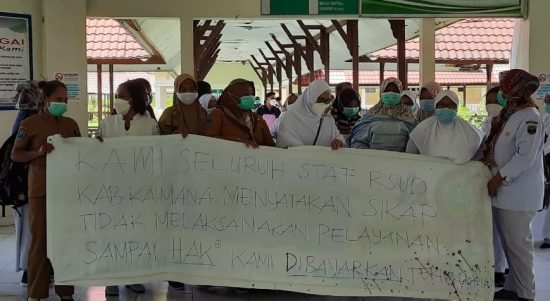 KAMI SELURUH STAF RSUD
KAB KAIMANA MENYATAKAN SIKAP
TIDAK MELAKSANAKAN PELAYANAN
SAMPAI HAK² KAMI DIBAYARKAN